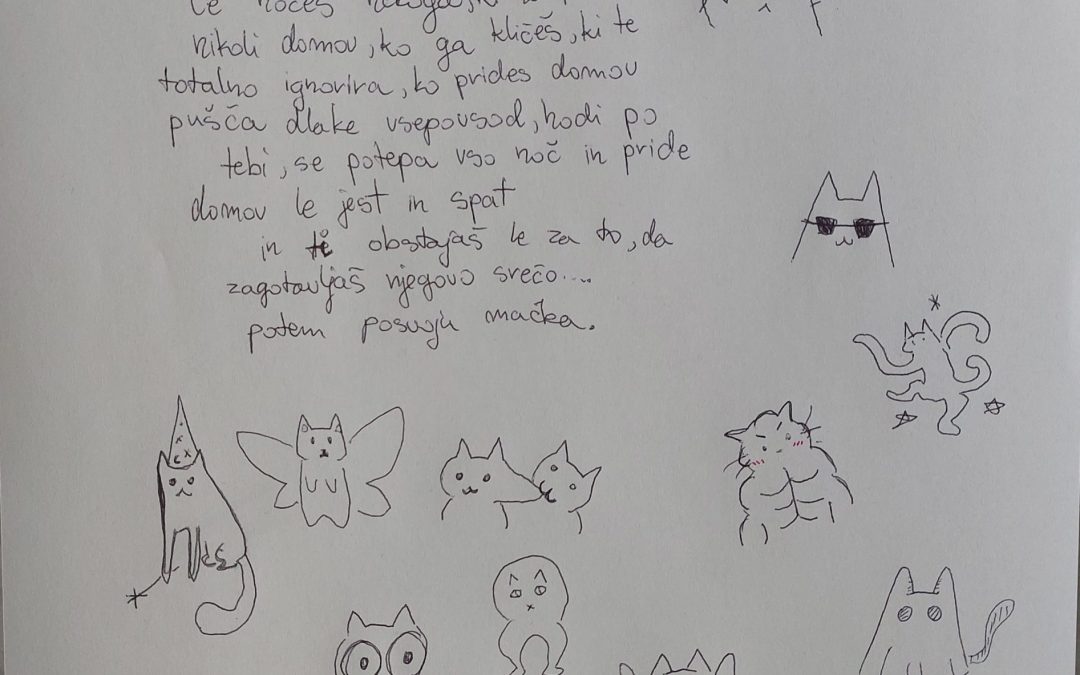 če hočeš nekoga, ki
nikoli domov, ko ga kličeš, ki te
totalno ignorira, ko prides domov
pušča dlake vsepovsod, hodi po
tebi, se potepa vso noč in pride
domov le jest in spat
in obstajaš le za to, da
zagotavljaš njegovo srečo....
potem posvoji mačka.